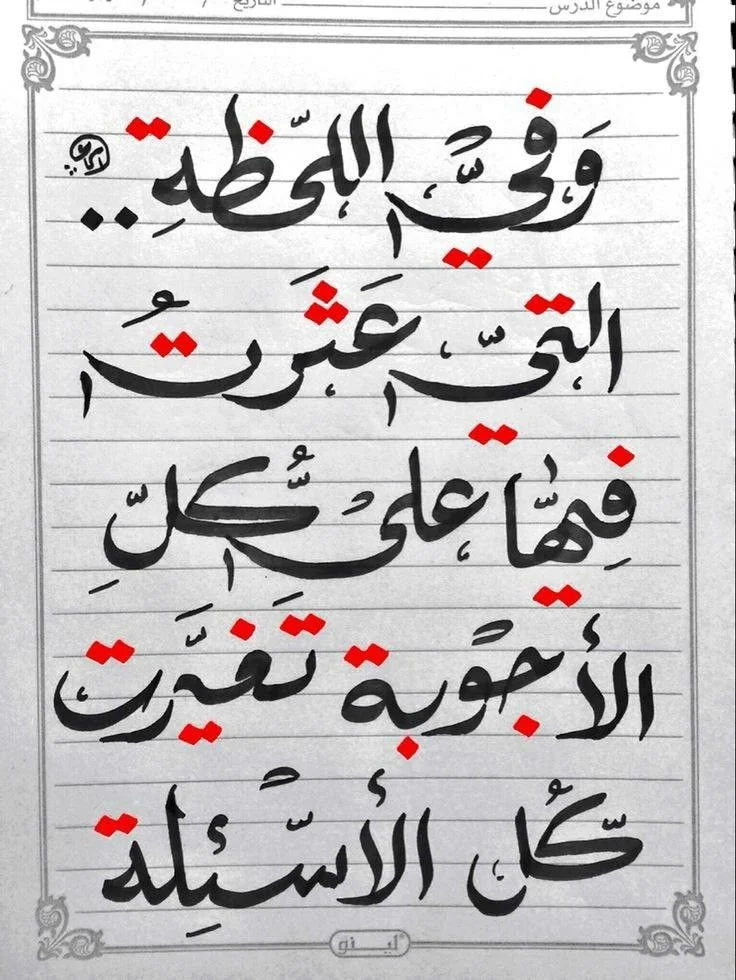 موضوع الدرس التاريخ
وَفيّ اللّحظةِ ..
التيّ عَثَرتُ
فِيهّا على كُلِّ
الأجوبة تَغيَّرت
كُّل الأسّئِلة
لينو